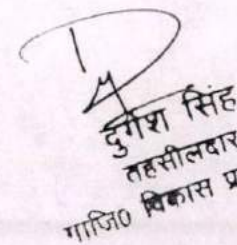 दुर्गेश सिंह
तहसीलदार
गाजि० विकास प्र